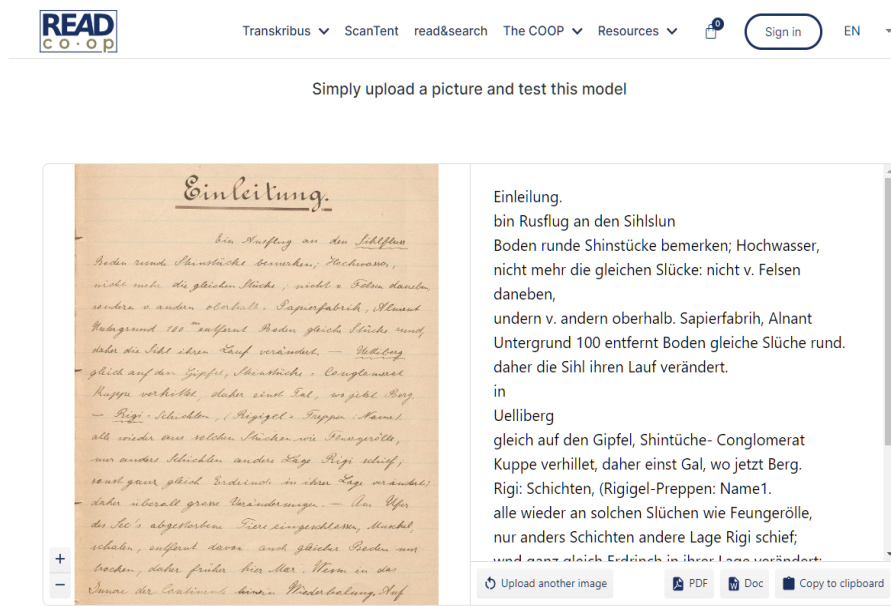 READ
co·op
Transkribus ScanTent read&search The COOP Resources 0 Sign in EN
Simply upload a picture and test this model
Einleitung.
Ein Ausflug an den Sihlfluss
Boden runde Steinstücke bemerken; Hochwasser,
nicht mehr die gleichen Stücke; nicht v. Felsen daneben,
sondern v. andern oberhalb. Papierfabrik, Almant
Untergrund 100 m entfernt Boden gleiche Stücke rund,
daher die Sihl ihren Lauf verändert. — Uetliberg
gleich auf den Gipfel, Steinstücke - Conglomerat
Kuppe verkittet, daher einst Tal, wo jetzt Berg.
— Rigi - Schichten, (Rigigel - Treppen: Name)
alle wieder aus solchen Stücken wie Feuergerölle,
nur anders Schichten andere Lage Rigi schief;
sonst ganz gleich Erdrinde in ihrer Lage verändert;
daher überall grosse Veränderungen. — Am Ufer
des See's abgestorbene Tiere eingeschlossen, Muschel,
schalen, entfernt davon auch gleicher Boden nur
trocken, daher früher hier Mar. Wenn in das
Innere der Continente hinein Wiederholung. Auf
+
−
Einleilung.
bin Rusflug an den Sihlslun
Boden runde Shinstücke bemerken; Hochwasser,
nicht mehr die gleichen Slücke: nicht v. Felsen
daneben,
undern v. andern oberhalb. Sapierfabrih, Alnant
Untergrund 100 entfernt Boden gleiche Slüche rund.
daher die Sihl ihren Lauf verändert.
in
Uelliberg
gleich auf den Gipfel, Shintüche- Conglomerat
Kuppe verhillet, daher einst Gal, wo jetzt Berg.
Rigi: Schichten, (Rigigel-Preppen: Name1.
alle wieder an solchen Slüchen wie Feungerölle,
nur anders Schichten andere Lage Rigi schief;
wnd ganz gleich Erdrinch in ihrer Lage verändert:
Upload another image PDF Doc Copy to clipboard